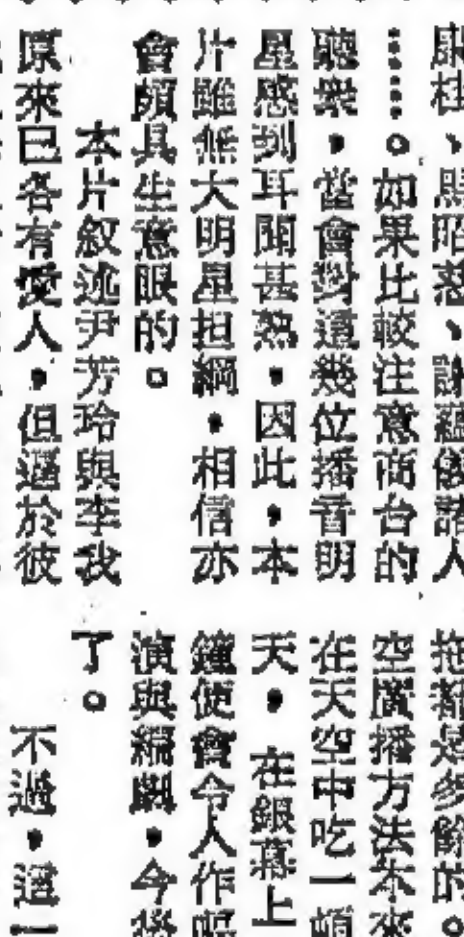 尉桂、馬昭慈、諸人
……。如果比較注意商台的
聽衆,當會對這幾位播音明
星感到耳聞甚熱,因此,本
片雖無大明星担綱,相信亦
會頗具生意眼的。
本片叙述尹芳玲與李我
原來已各有愛人,但逼於彼
拖都是多餘的。
空廣播方法本來
在天空中吃一頓
天,在銀幕上
鐘便會令人作嘔
演與編劇,今後
了。
不過,這一